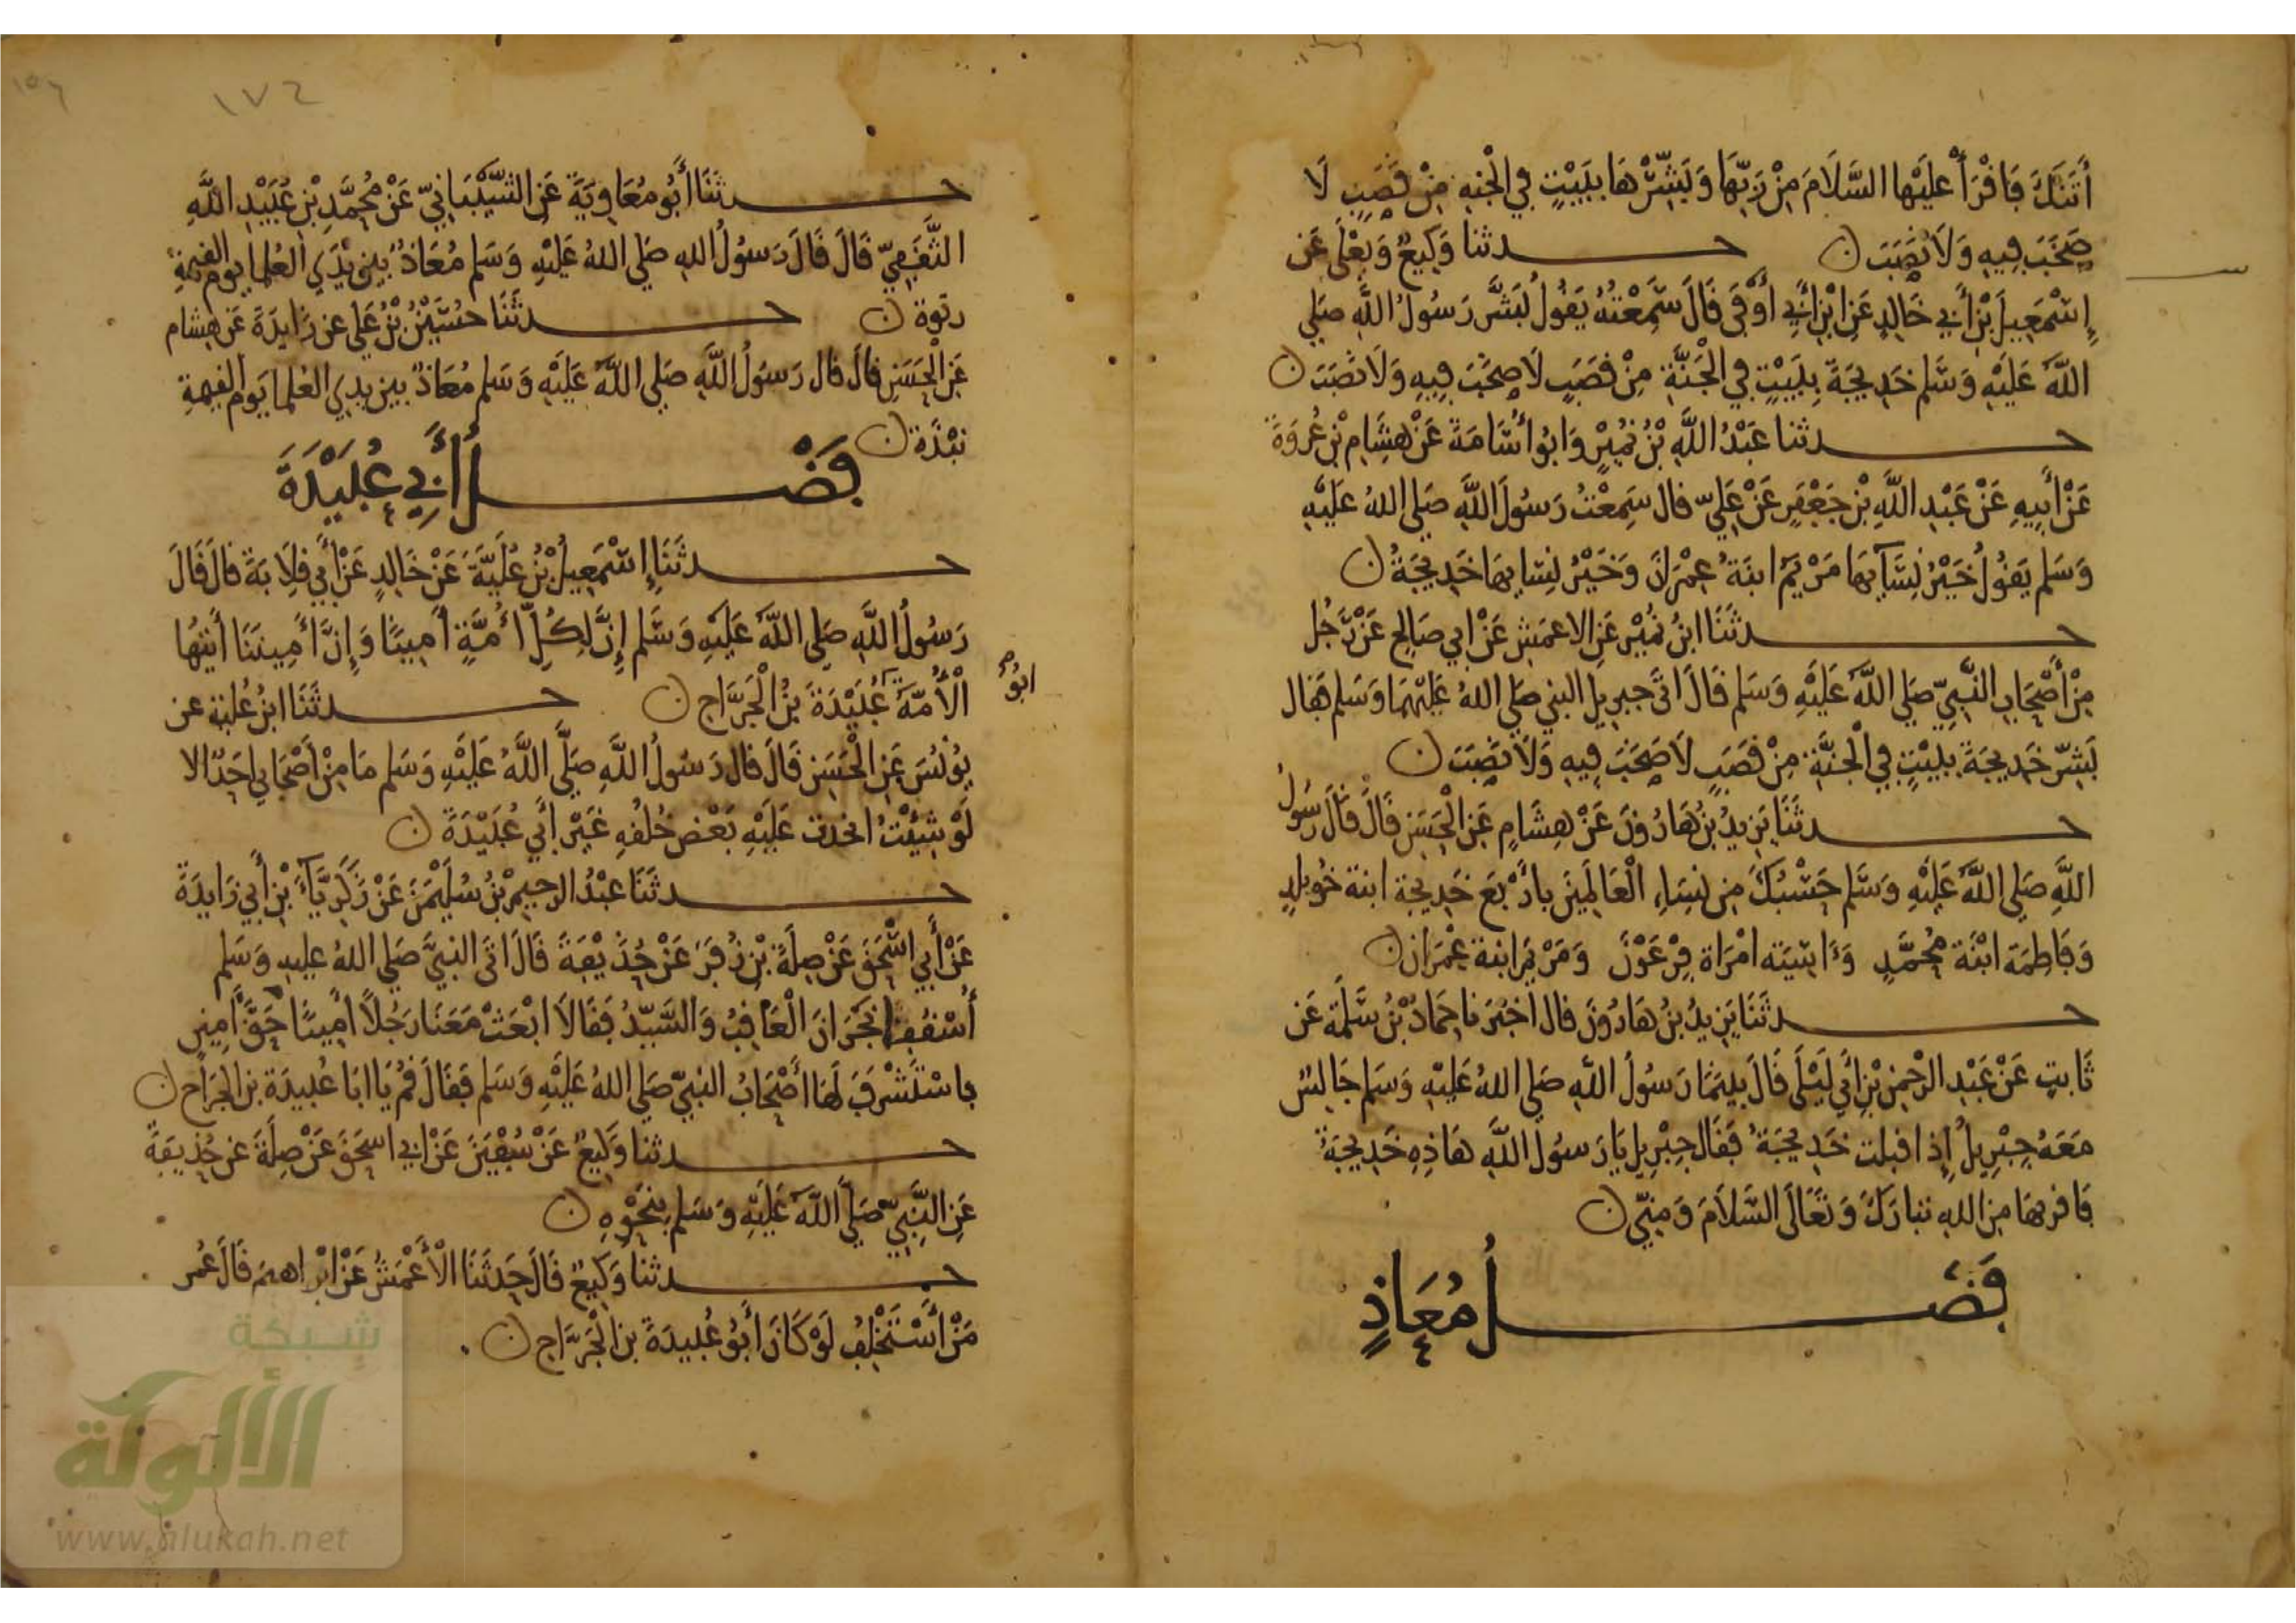 أتتك فاقرأ عليها السلام من ربها وبشرها ببيت في الجنه من قصب لا
صخب فيه ولا نصب ن حدثنا وكيع ويعلى عن
إسمعيل بن أبي خالد عن ابن أبي أوفى قال سمعته يقول بشر رسول الله صلى
الله عليه وسلم خديجة ببيت في الجنة من قصب لا صخب فيه ولا نصب ن
حدثنا عبد الله بن نمير وابو أسامة عن هشام بن عروة
عن أبيه عن عبد الله بن جعفر عن علي قال سمعت رسول الله صلى الله عليه
وسلم يقول خير نسآيها مريم ابنة عمرن وخير نسايها خديجة ن
حدثنا ابن نمير عن الاعمش عن ابي صالح عن رجل
من أصحاب النبي صلى الله عليه وسلم قال اتى جبريل النبي صلى الله عليهما وسلم فقال
بشر خديجة ببيت في الجنة من قصب لا صخب فيه ولا نصب ن
حدثنا يزيد بن هارون عن هشام عن الحسن قال قال رسول
الله صلى الله عليه وسلم حسبك من نساء العالمين بأربع خديجة ابنة خويلد
وفاطمة ابنة محمد وءاسيه امراة فرعون ومريم ابنة عمران ن
حدثنا يزيد بن هارون قال اخبرنا حماد بن سلمة عن
ثابت عن عبد الرحمن بن أبي ليلى قال بينما رسول الله صلى الله عليه وسلم جالس
معه جبريل إذ اقبلت خديجة فقال جبريل يا رسول الله هاذه خديجة
فاقرها من الله تبارك وتعالى السلام ومني ن
فضل معاذ
١٧٤
١٥٦
حدثنا أبو معاوية عن الشيباني عن محمد بن عبيد الله
الثقفي قال قال رسول الله صلى الله عليه وسلم معاذ بين يدي العلما يوم القيمة
رتوة ن حدثنا حسين بن علي عن زايدة عن هشام
عن الحسن قال قال رسول الله صلى الله عليه وسلم معاذ بين يدي العلما يوم القيمة
نبذة ن
فضل أبي عبيدة
حدثنا إسمعيل بن علية عن خالد عن أبي قلابة قال قال
رسول الله صلى الله عليه وسلم إن لكل أمة أمينا وإن أميننا أيتها
الأمة عبيدة بن الجراح ن حدثنا ابن علية عن
ابو
يونس عن الحسن قال قال رسول الله صلى الله عليه وسلم ما من أصحابي احد الا
لو شيئت اخذت عليه بعض خلقه غير أبي عبيدة ن
حدثنا عبد الرحيم بن سليمن عن زكريآء بن أبي زايدة
عن أبي اسحق عن صلة بن زفر عن حذيفة قال اتى النبي صلى الله عليه وسلم
أسقفا نجران العاقب والسيد فقالا ابعث معنا رجلا أمينا حق أمين
فاستشرف لها أصحاب النبي صلى الله عليه وسلم فقال قم يا ابا عبيدة بن الجراح ن
حدثنا وكيع عن سفين عن ابي اسحق عن صلة عن حذيفة
عن النبي صلى الله عليه وسلم بنحوه ن
حدثنا وكيع قال حدثنا الأعمش عن ابراهيم قال عمر
من أستخلف لو كان أبو عبيدة بن الجراح ن
شبكة
الألوكة
www.alukah.net